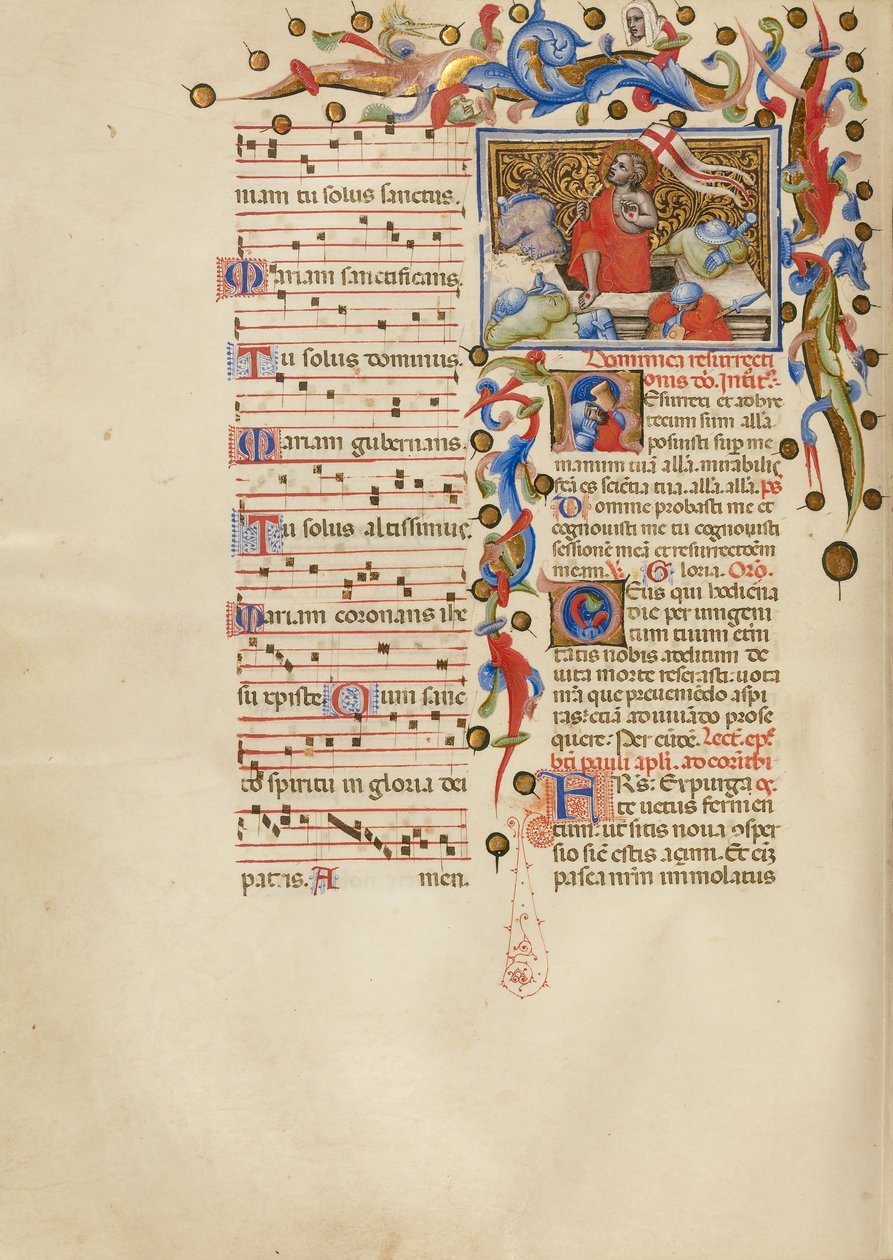 niam tu solus sanctus.
Mariam sanctificans.
Tu solus dominus.
Mariam gubernans.
Tu solus altissimus.
Mariam coronans ihe
su xpiste. Cum sanc
to spiritu in gloria dei
patris. A men.
Dominica resurrecti
onis dō. Intit.
Resurrexi et adhuc
tecum sum all'a
posuisti sup me
manum tuā all'a. mirabilis
fcā es sciētia tua. all'a. all'a. ps
Domine probasti me et
cognouisti me tu cognouisti
sessionē meā et resurrectōēm
meam. V. Gloria. Orō.
Deus qui hodierna
die per unigeni
tum tuum eterni
tatis nobis aditum de
uicta morte reserasti. uota
nrā que preueniēdo aspi
ras. etiā adiuuādo prose
quere. Per eūdē. Lect. ep̄e
bti pauli apli. ad corinthi
FRS. Expurga os.
te uetus fermen
tum. ut sitis noua ꝯsper
sio sic̄ estis açimi. Et eīz
pasca nrm immolatus